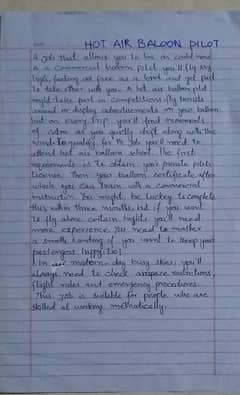 HOT AIR BALOON PILOT
A job that allows you to be on could nine
As a commercial balloon pilot you'll fly sky
high, feeling as free as a bird and get paid
to take other with you. A hot air ballon pilot
might take part in competitions fly tourists
around or display advertisements on your balloon
but on every trip you'll find movements
of calm as you quietly drift along with the
wind. To qualify for th job you'll need to
attend hot air balloon school. The first
requirements is to obtain your private pilots
License. Then your balloon certificate after
which you can train with a commercial
instructor. You might be lucky to complete
this within three months, but if you want
to fly above certain hights, you'll need
more experience. You need to master
a smooth landing if you want to keep your
passengers happy too!
In modern-day busy skies, you'll
always need to check airspace restrictions,
flight rules and emergency procedures.
This job is suitable for people who are
skilled at working methodically.